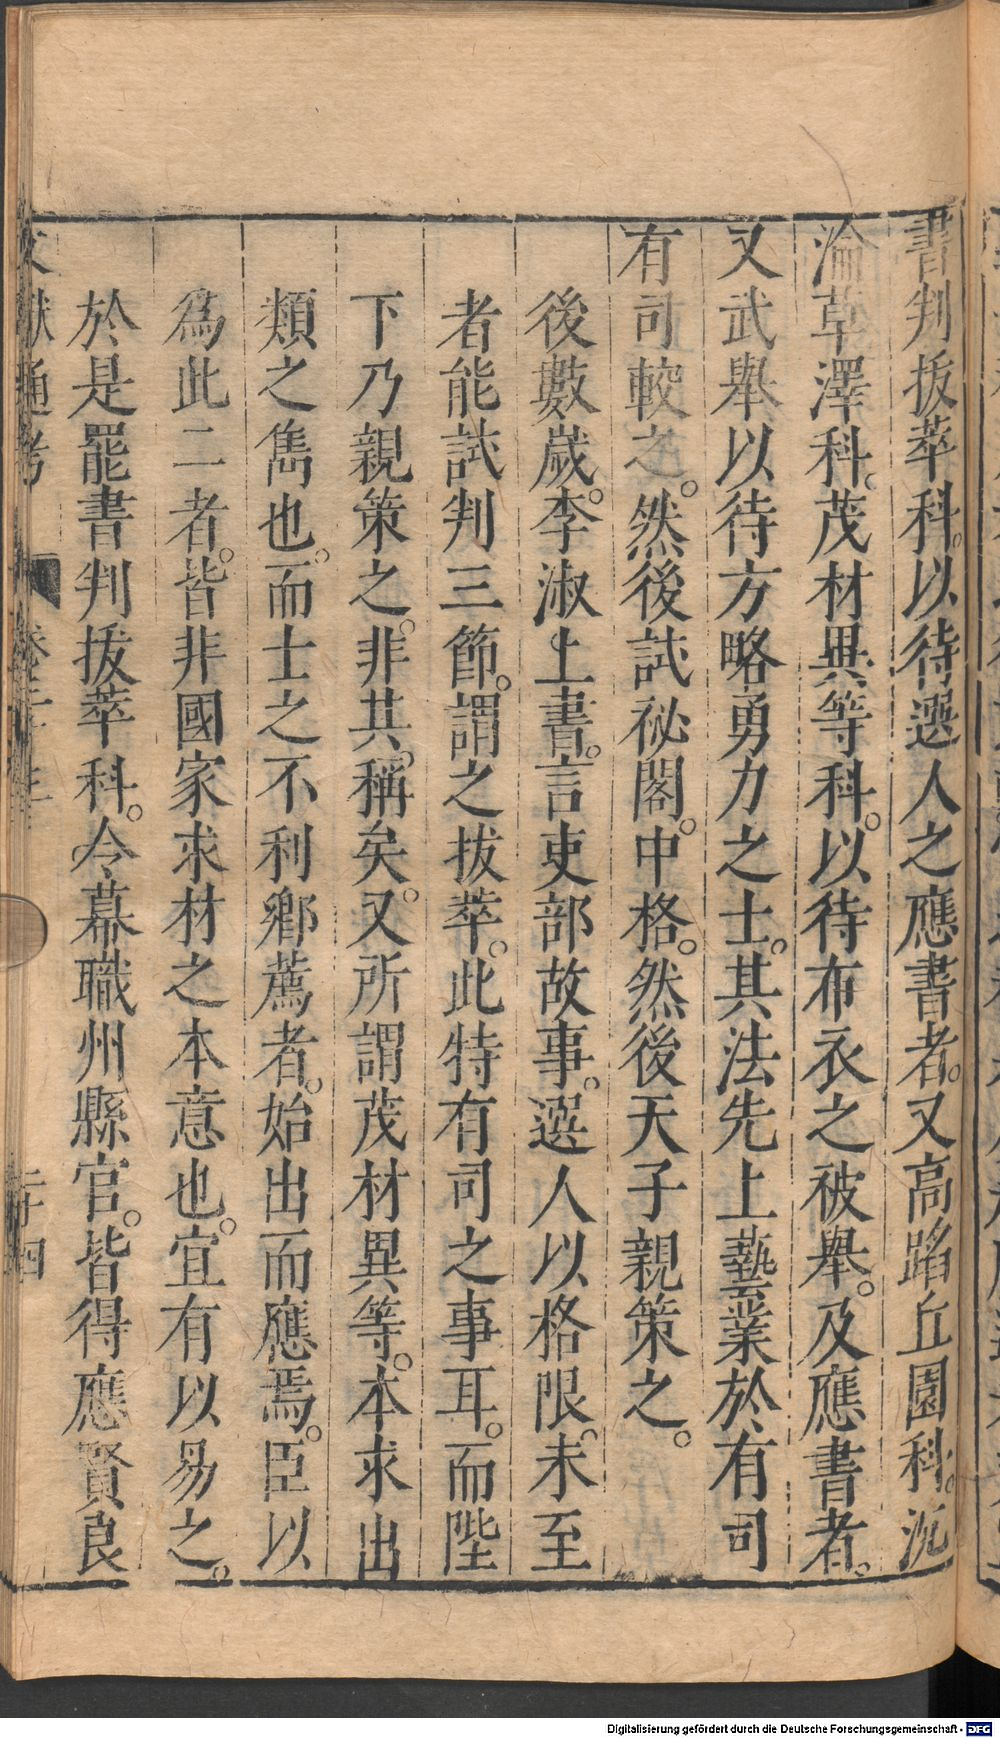 書判拔萃科。以待選人之應書者。又高蹈丘園科。沉
淪草澤科。茂材異等科。以待布衣之被舉。及應書者。
又武舉以待方略勇力之士。其法先上藝業於有司
有司較之。然後試祕閣。中格。然後天子親策之。
後數歲。李淑上書。言吏部故事。選人以格限。未至
者能試判三節。謂之拔萃。此特有司之事耳。而陛
下乃親策之。非其稱矣。又所謂茂材異等。本求出
類之雋也。而士之不利鄉薦者。始出而應焉。臣以
為此二者。皆非國家求材之本意也。宜有以易之。
於是罷書判拔萃科。令幕職州縣官。皆得應賢良
文獻通考 卷三十三 二十四
Digitalisierung gefördert durch die Deutsche Forschungsgemeinschaft - DFG